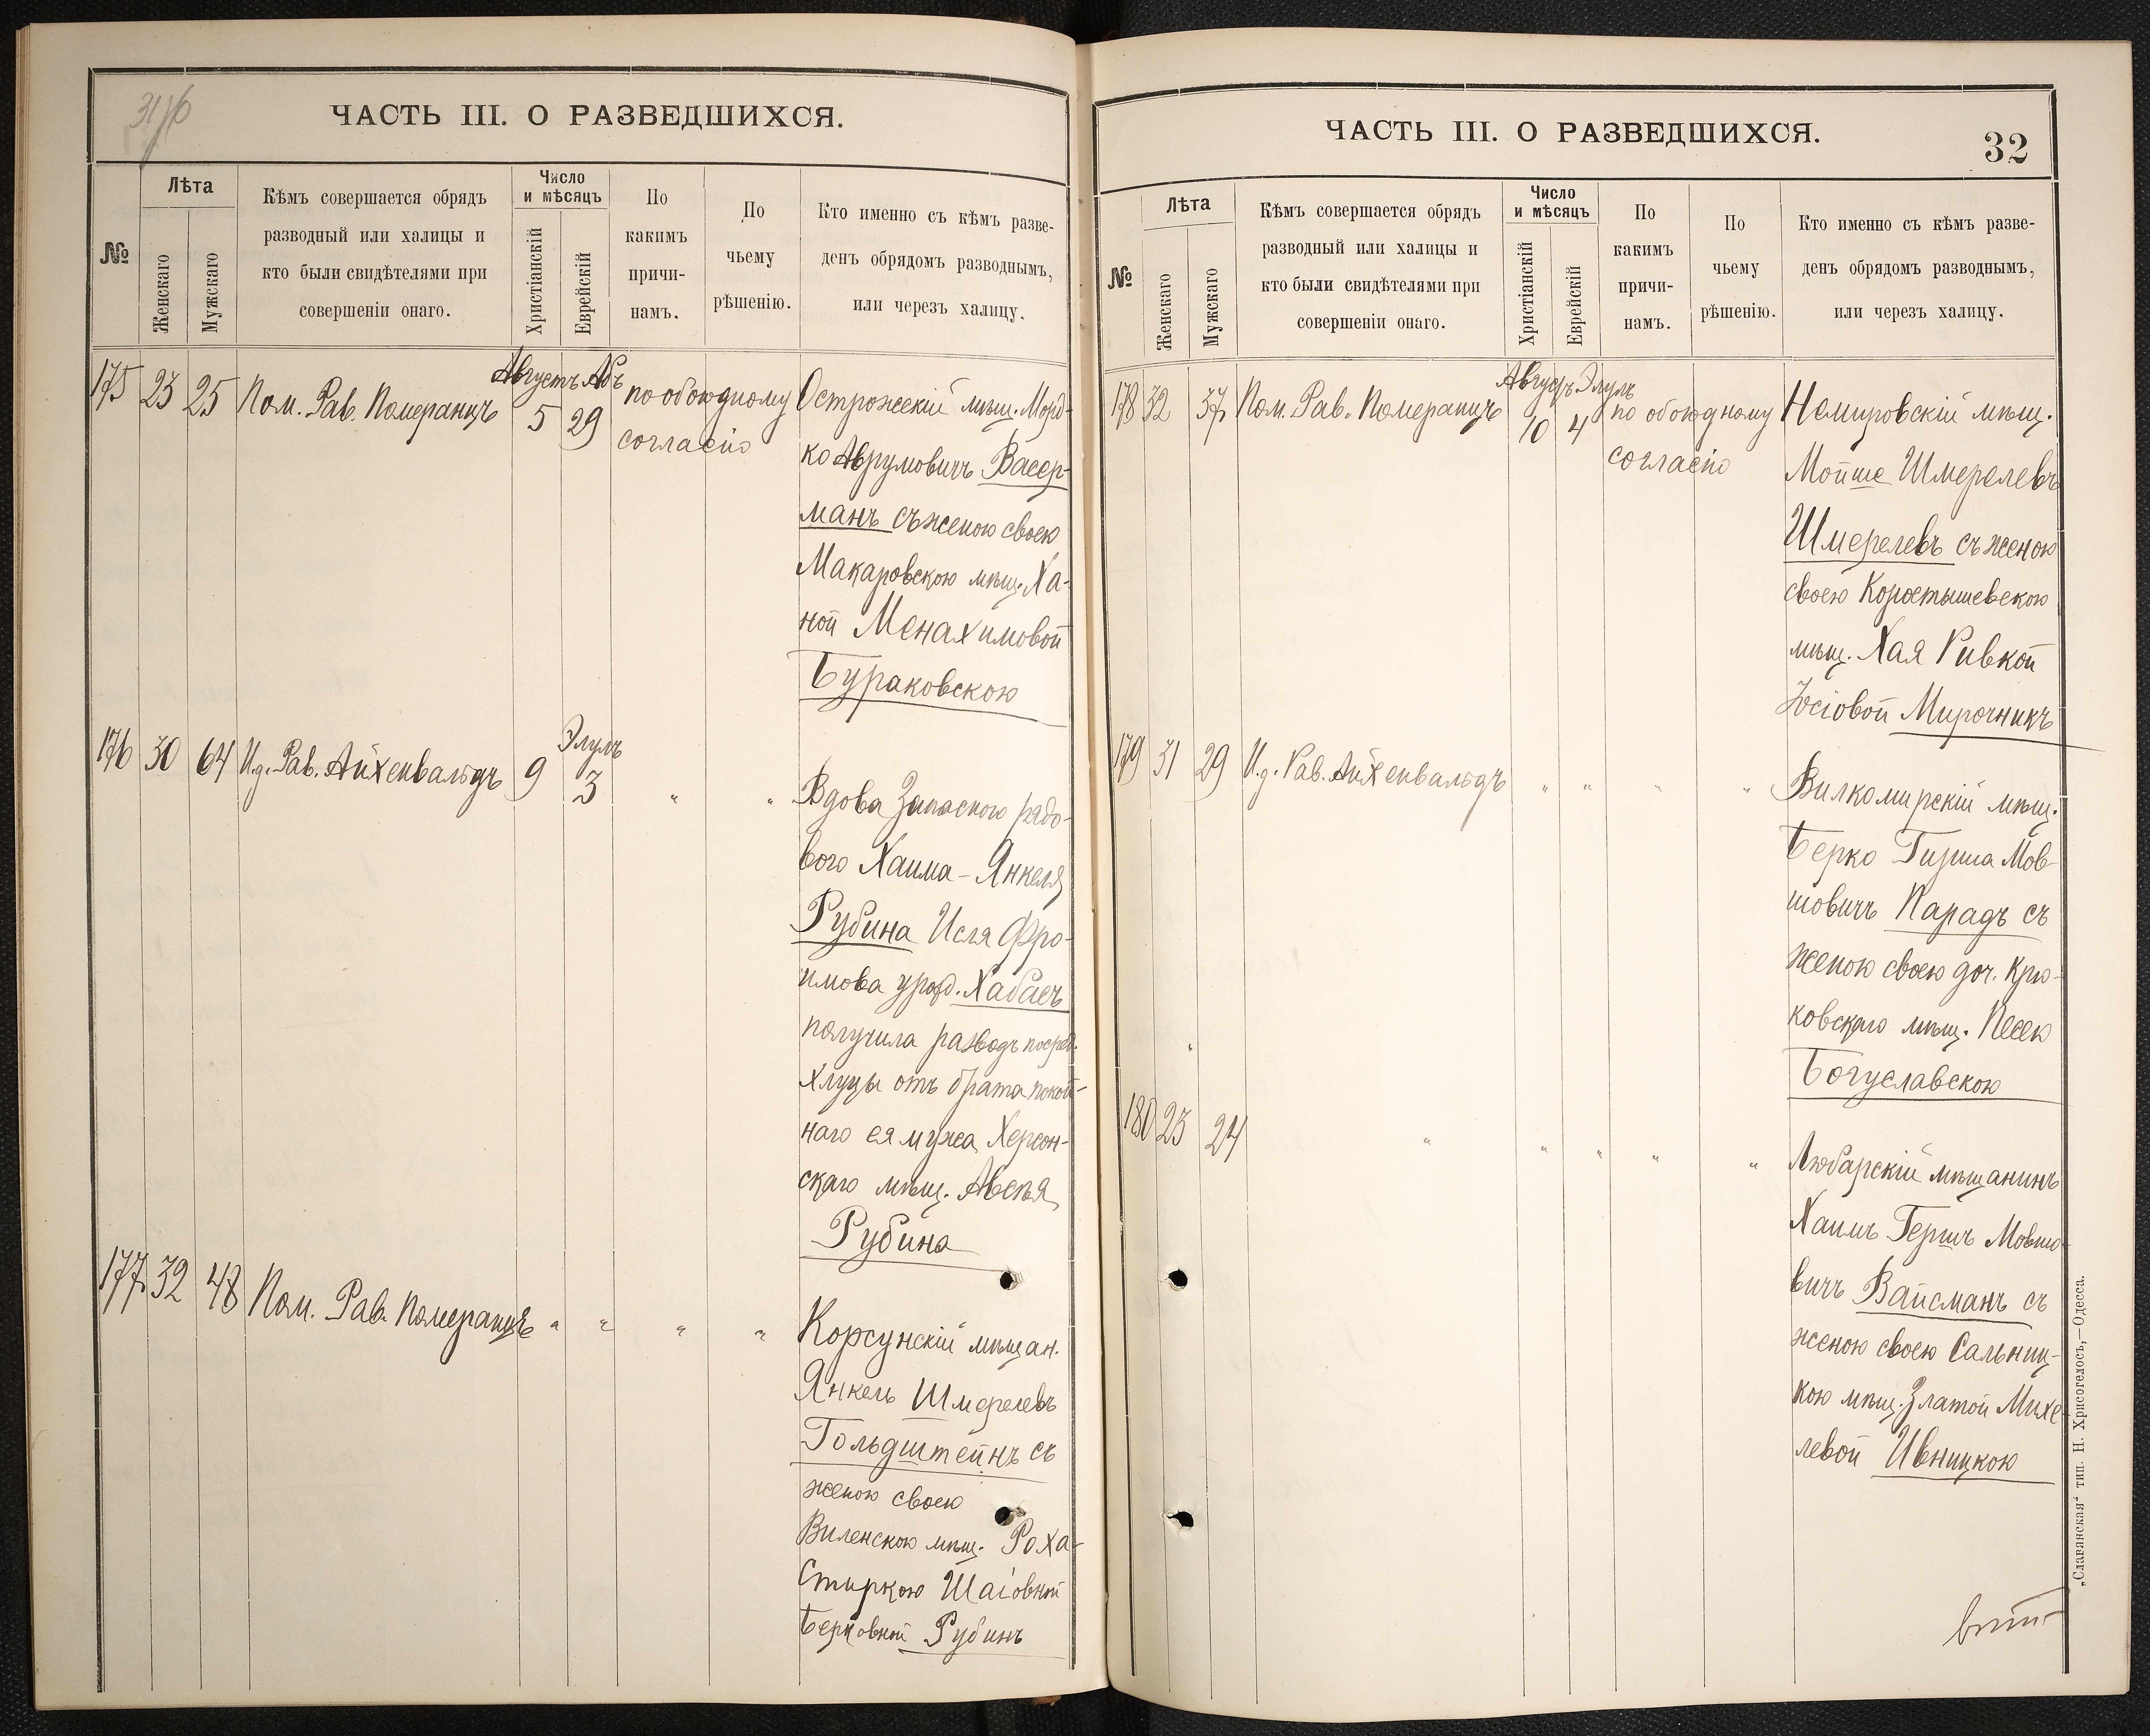 31об
ЧАСТЬ III. О РАЗВЕДШИХСЯ.
№
Лѣта
Женскаго
Мужскаго
Кѣмъ совершается обрядъ
разводный или халицы и
кто были свидѣтелями при
совершеніи онаго.
Число
и мѣсяцъ
Христіанскій
Еврейскій
По
какимъ
причи-
намъ.
По
чьему
рѣшенію.
Кто именно съ кѣмъ разве-
денъ обрядомъ разводнымъ,
или черезъ халицу.
175 23 25 Пом. Рав. Померанцъ Августъ 5 Абъ 29 по обоюдному
согласію
Острожскій мѣщ. Морд-
ко Аврумовичъ Васер-
манъ съ женою своею
Макаровскою мѣщ. Ха-
ной Менахимовой
Бураковскою
176 30 64 И.д. Рав. Айхенвальдъ 9 Элулъ 3 " "
Вдова Запасного рядо-
вого Хаима-Янкеля
Рубина Исля Фро-
имова урожд. Хабасъ
получила разводъ посред.
хлуцы отъ брата покой-
наго ея мужа Херсон-
скаго мѣщ. Авсѣя
Рубина
177 32 48 Пом. Рав. Померанцъ " " " "
Корсунскій мѣщан.
Янкель Шмерелевъ
Гольдштейнъ съ
женою своею
Виленскою мѣщ. Роха-
Стиркою Шаiовной
Берковной Рубинъ
ЧАСТЬ III. О РАЗВЕДШИХСЯ.
32
№
Лѣта
Женскаго
Мужскаго
Кѣмъ совершается обрядъ
разводный или халицы и
кто были свидѣтелями при
совершеніи онаго.
Число
и мѣсяцъ
Христіанскій
Еврейскій
По
какимъ
причи-
намъ.
По
чьему
рѣшенію.
Кто именно съ кѣмъ разве-
денъ обрядомъ разводнымъ,
или черезъ халицу.
178 32 37 Пом. Рав. Померанцъ Августъ 10 Элулъ 4 по обоюдному
согласію
Немировскій мѣщ.
Мойше Шмерелевъ
Шмерелевъ съ женою
своею Коростышевскою
мѣщ. Хая Ривкой
Іосіовой Мирочникъ
179 31 29 И.д. Рав. Айхенвальдъ " " " "
Вилкомирскій мѣщ.
Берко Гирша Мов-
шовичъ Парадъ съ
женою своею доч. Крю-
ковскаго мѣщ. Песею
Богуславскою
180 23 24 " " " " "
Любарскій мѣщанинъ
Хаимъ Гершъ Мовшо-
вичъ Вайсманъ съ
женою своею Сальниц-
кою мѣщ. Златой Михе-
левой Ивницкою
„Славянская“ тип. Н. Хрисогелосъ,—Одесса.